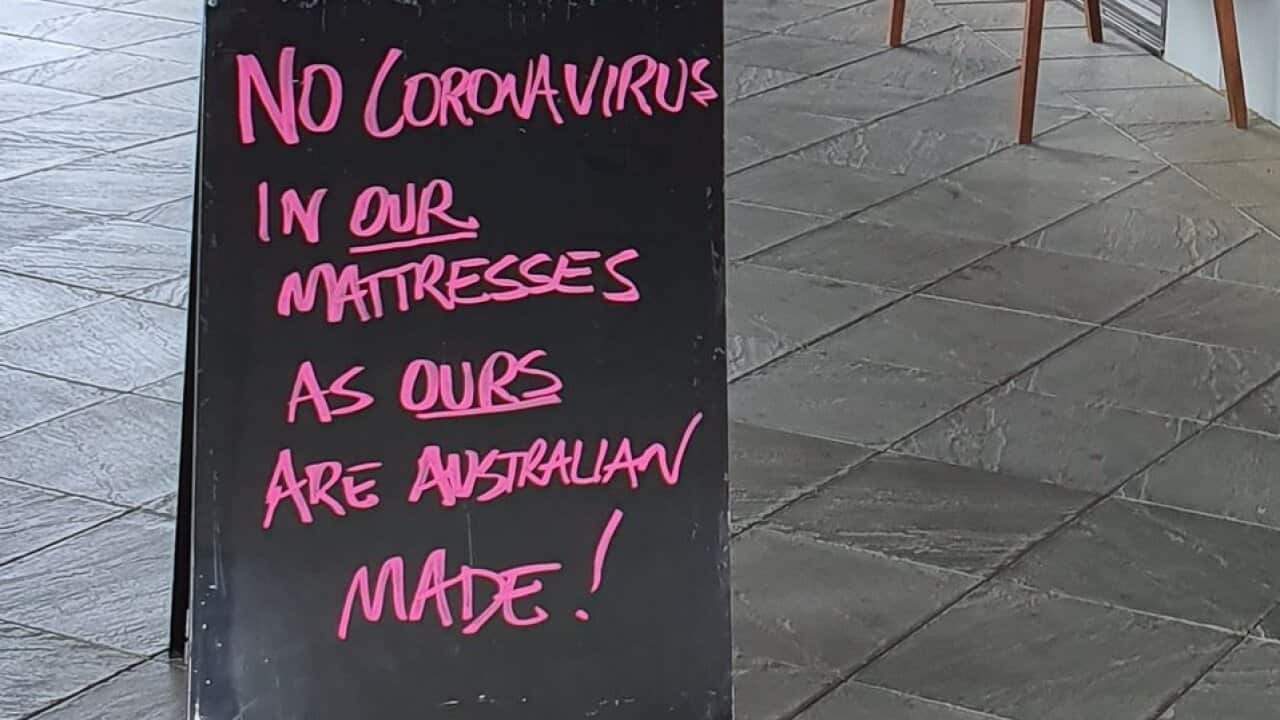 NO CORONAVIRUS
IN OUR
MATTRESSES
AS OURS
ARE AUSTRALIAN
MADE!